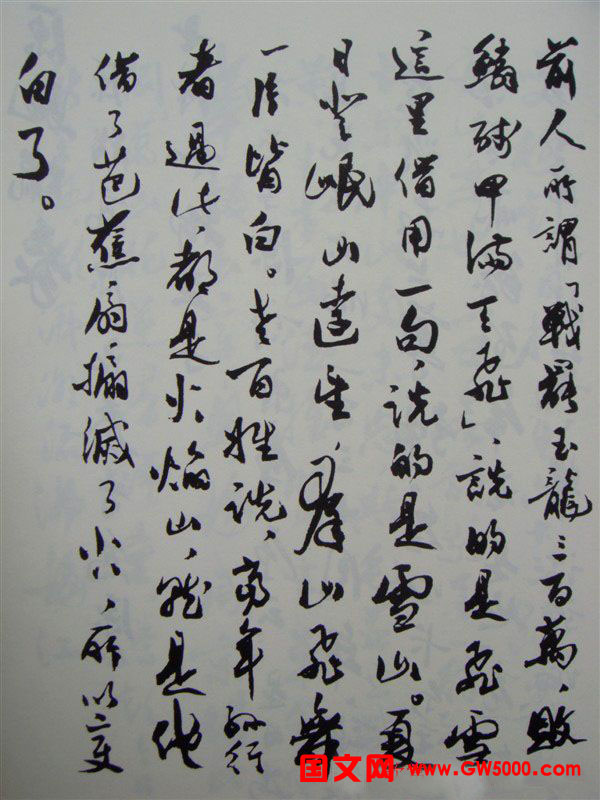 前人所謂「戰罷玉龍三百萬、敗
鱗殘甲滿天飛」、說的是飛雪
這里借用一句、說的是雪山。夏
日登岷山遠望、群山飛舞
一片皆白。老百姓說、當年孫行
者過此、都是火焰山、就是他
借了芭蕉扇搧滅了火、所以變
白了。
国文网 www.GW5000.com